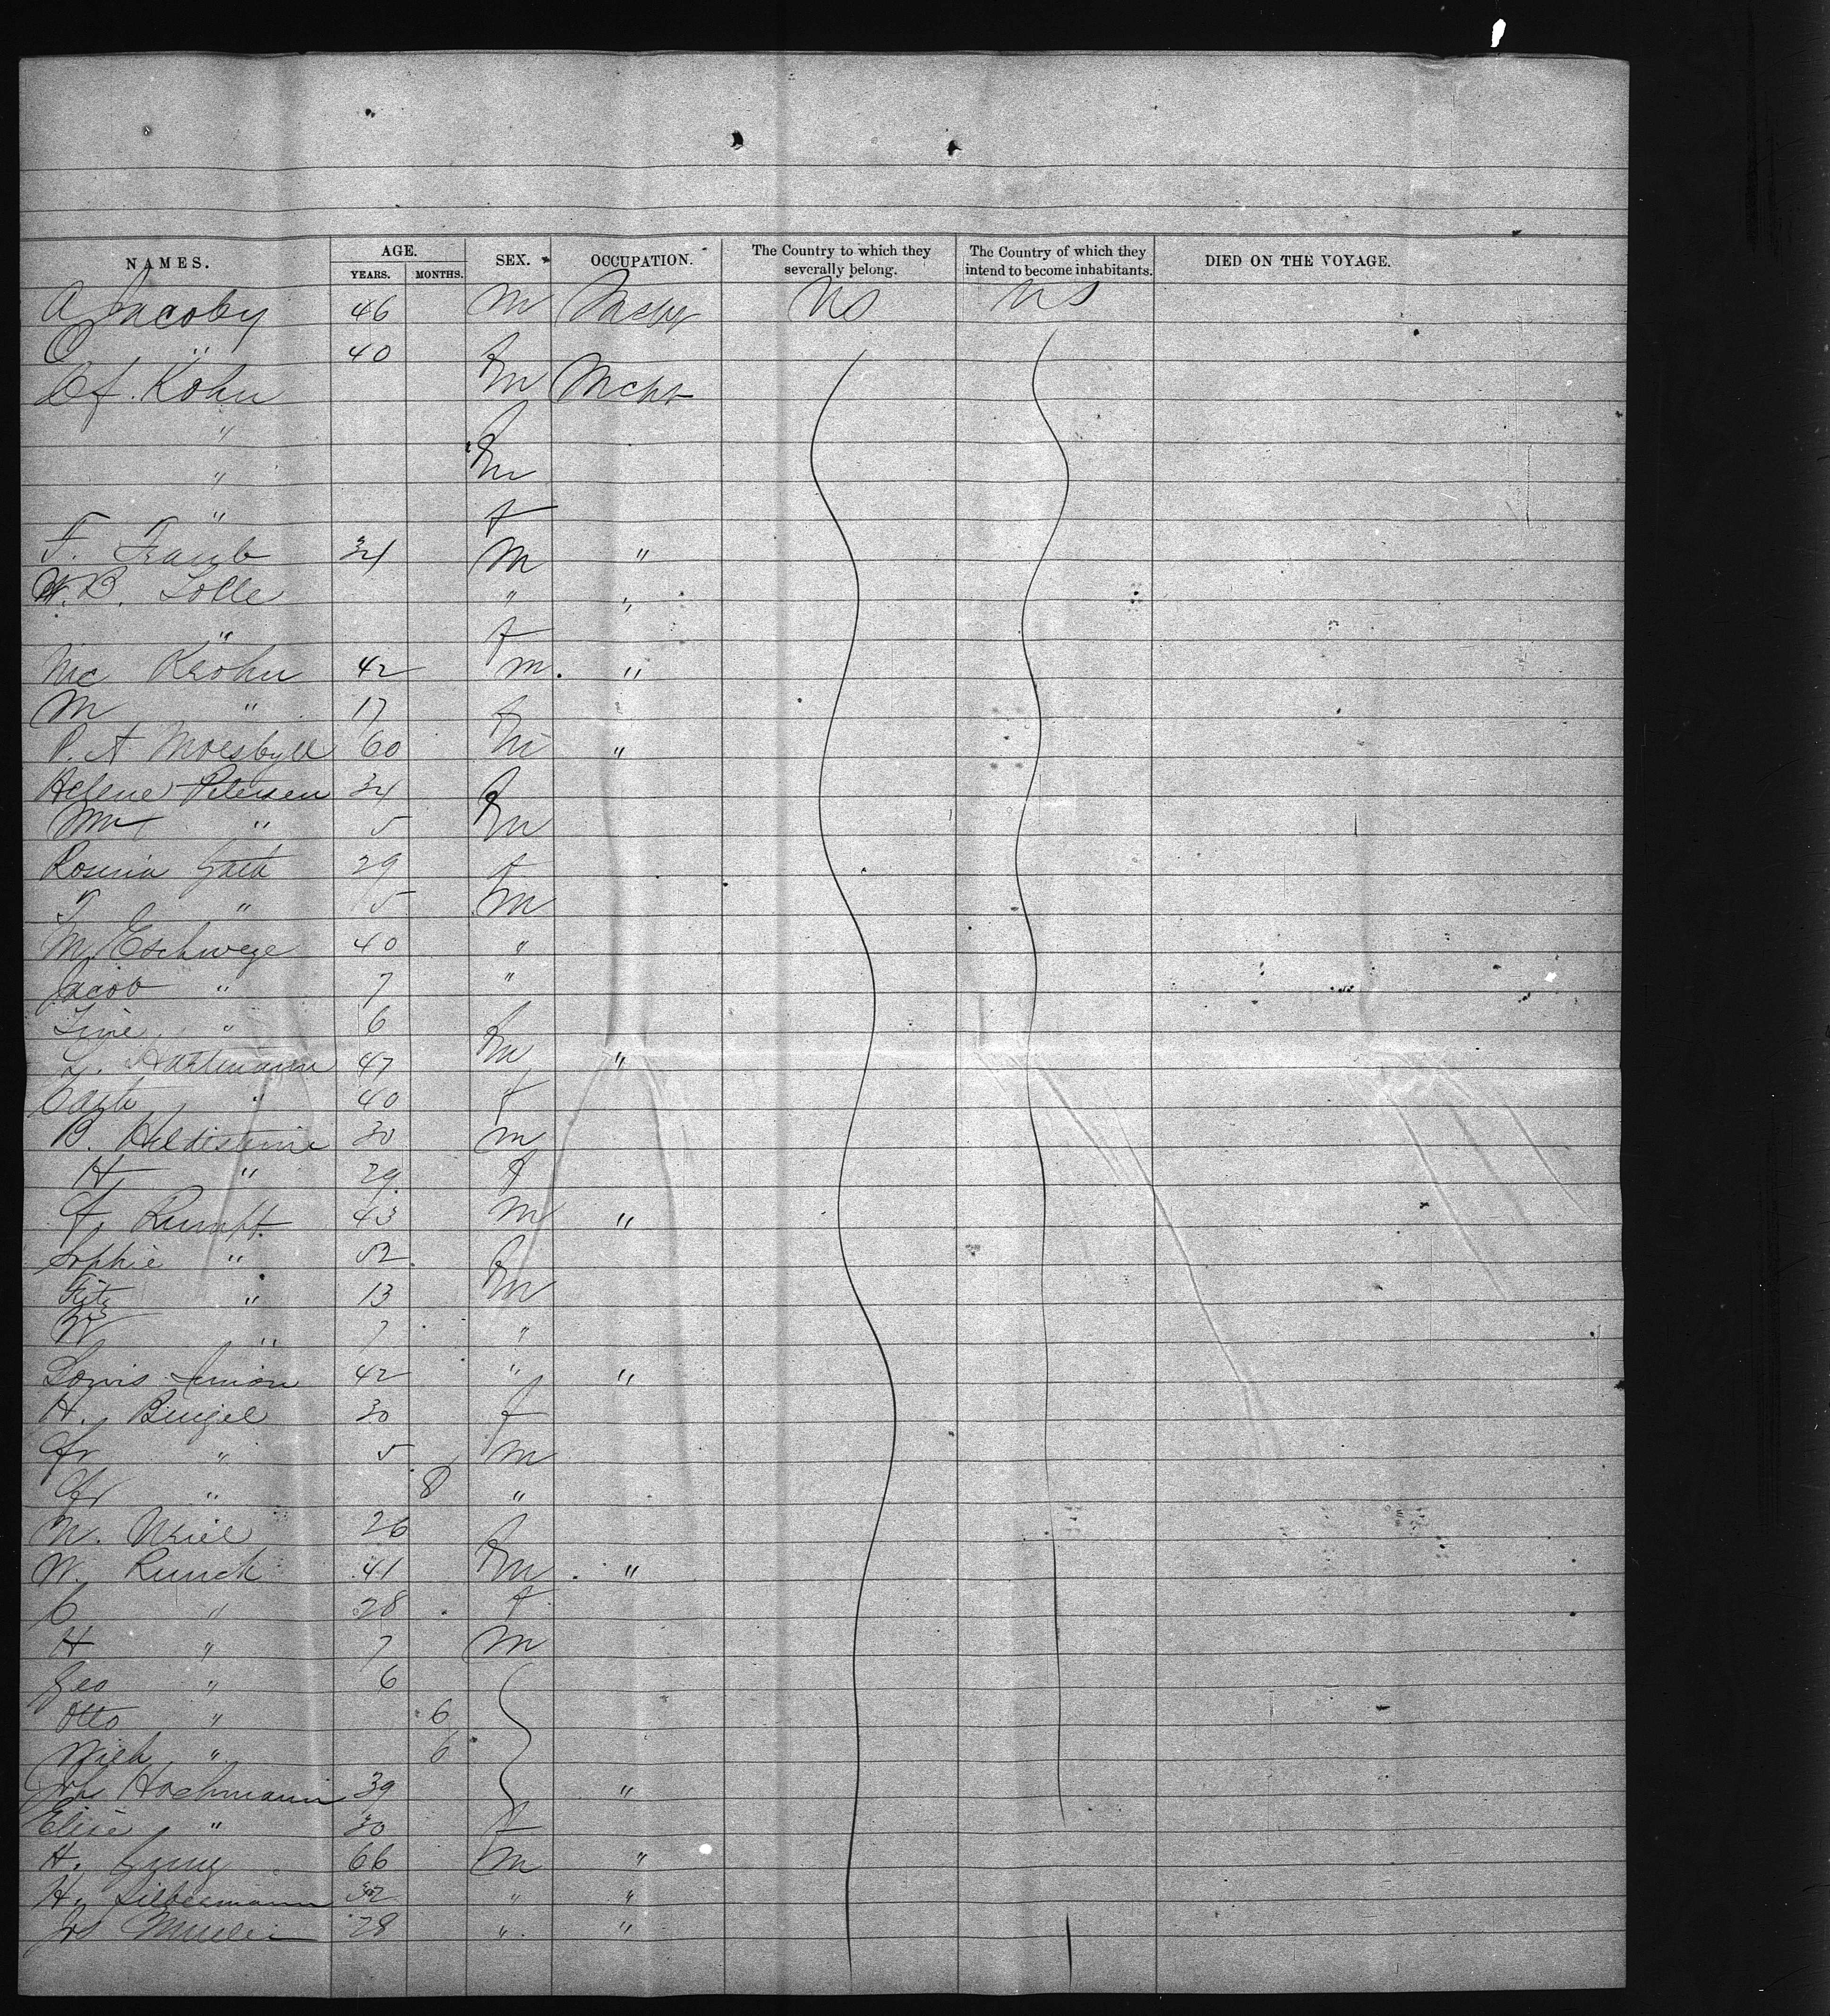 NAMES. AGE. YEARS. MONTHS. SEX. OCCUPATION. The Country to which they severally belong. The Country of which they intend to become inhabitants. DIED ON THE VOYAGE.
A Jacoby 46 m Mcht US US
C. " 40 f
Cf. Kohn m Mcht
" f
" m
" f
F. Traub 34 M "
W. B. Lolle " "
" f
Nic Krohn 42 m. "
M " 17 f
P. A 60 m "
Helene Petersen 34 f
" 5 m
Rosina 29 f
T " 5 m
M. Eschwege 40 "
Jacob " 7 "
Line " 6 f
L. Hartmann 47 m "
Cath " 40 f
B. 30 m
H " 29 f
F. Rumpft 43 M "
Sophie " 52 f
Fritz " 13 m
W " 7 "
Louis Simon 42 " "
H. Bingel 30 f
Fr " 5 m
Fr " 8 "
M. 26 f
W. Runck 41 m "
C " 28 f
H " 7 m
Geo " 6
Otto " 6
Wilh " 6
Joh Hochmann 39 "
Elise " 30 f
H. 66 m "
H. Silbermann 32 " "
Jos 28 " "